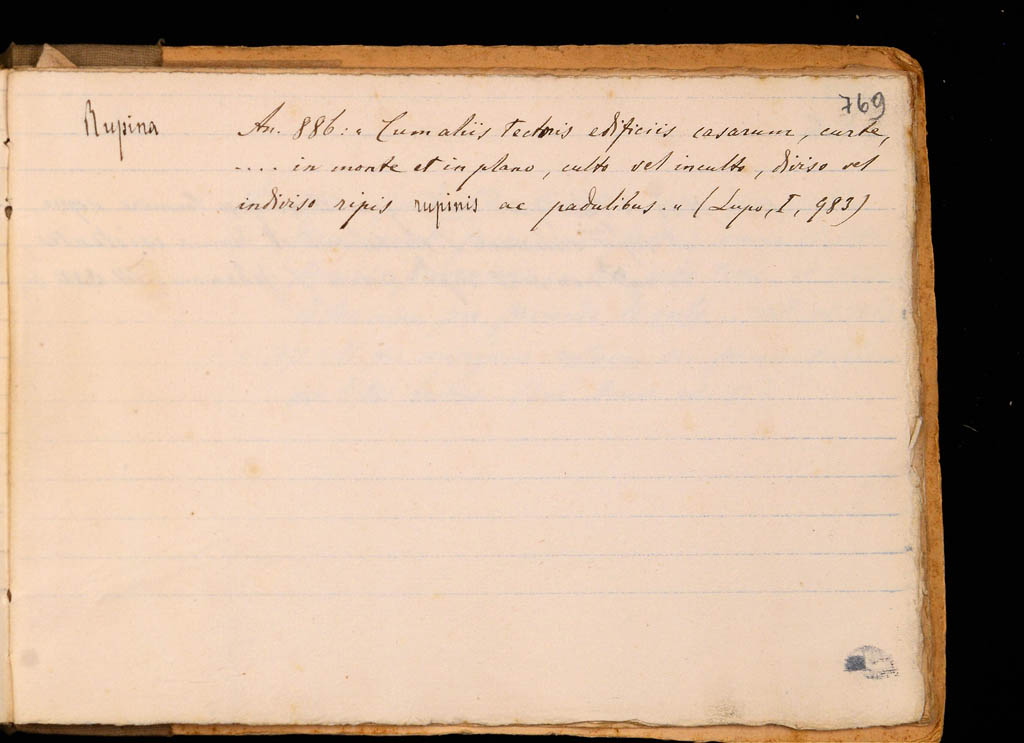 769
Rupina An. 886: « Cum aliis tectoris edificiis casarum, curte,
.... in monte et in plano, culto vel inculto, diviso vel
indiviso ripis rupinis ac padulibus. » (Lupo, I, 983)